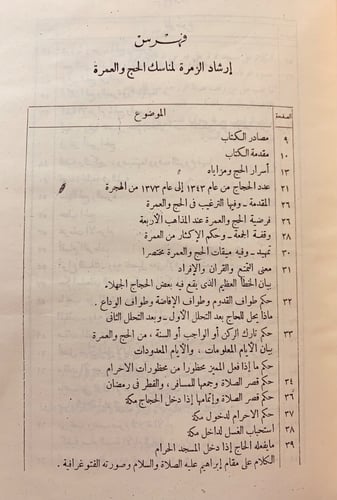 فهرس
إرشاد الزمرة لمناسك الحج والعمرة
الصفحة الموضوع
٩ مصادر الكتاب
١٠ مقدمة الكتاب
١٣ أسرار الحج ومزاياه
٢١ عدد الحجاج من عام ١٣٤٣ إلى عام ١٣٧٣ من الهجرة
٢٦ المقدمة ــ وفيها الترغيب فى الحج والعمرة
٢٦ فرضية الحج والعمرة عند المذاهب الأربعة
٢٨ وقفة الجمعة ــ وحكم الإكثار من العمرة
٣٠ تمهيد ــ وفيه ميقات الحج والعمرة مختصرا
٣١ معنى التمتع والقران والإفراد
بيان الخطأ العظيم الذى يقع فيه بعض الحجاج الجهلاء
٣٢ حكم طواف القدوم وطواف الإفاضة وطواف الوداع .
ماذا يحل للحاج بعد التحلل الأول ــ وبعد التحلل الثانى
٣٣ حكم تارك الركن أو الواجب أو السنة ، من الحج والعمرة
بيان الأيام المعلومات ، والأيام المعدودات
حكم ما إذا فعل المميز محظورا من محظورات الاحرام
٣٤ حكم قصر الصلاة وجمعها للمسافر ، والفطر فى رمضان
٣٦ حكم قصر الصلاة وإتمامها إذا دخل الحجاج مكة
٣٧ حكم الاحرام لدخول مكة
٣٨ استحباب الغسل لداخل مكة
٣٩ مايفعله الحاج إذا دخل المسجد الحرام
الكلام على مقام إبراهيم عليه الصلاة والسلام وصورته الفتوغرافية .